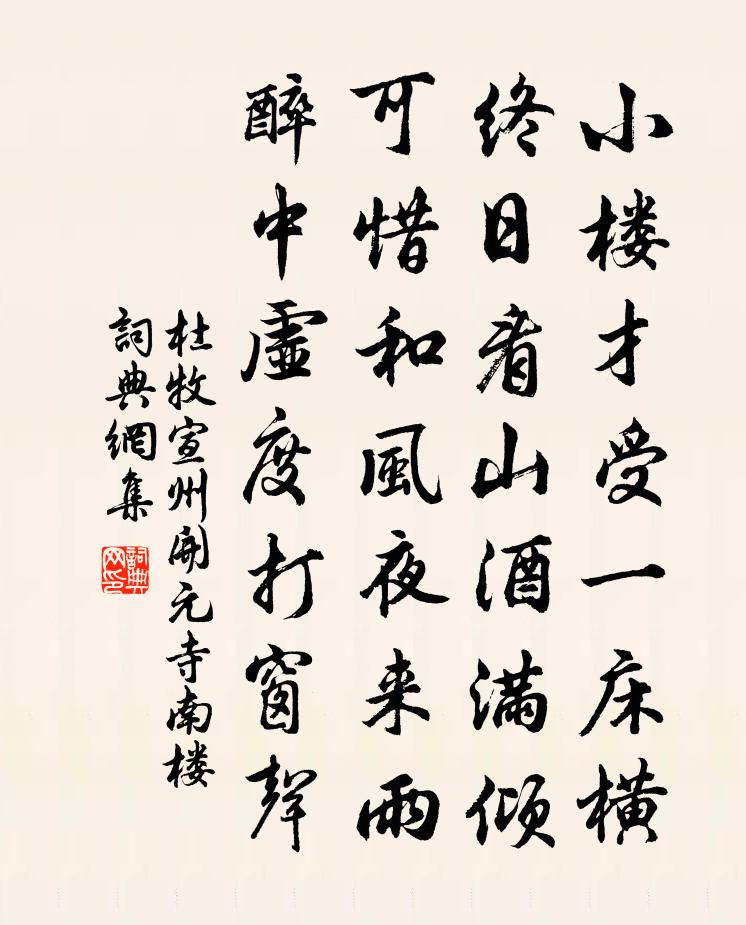 小楼才受一床横
终日看山酒满倾
可惜和風夜来雨
醉中虚度打窗聲
杜牧宣州開元寺南楼
詞典網集
詞典网印